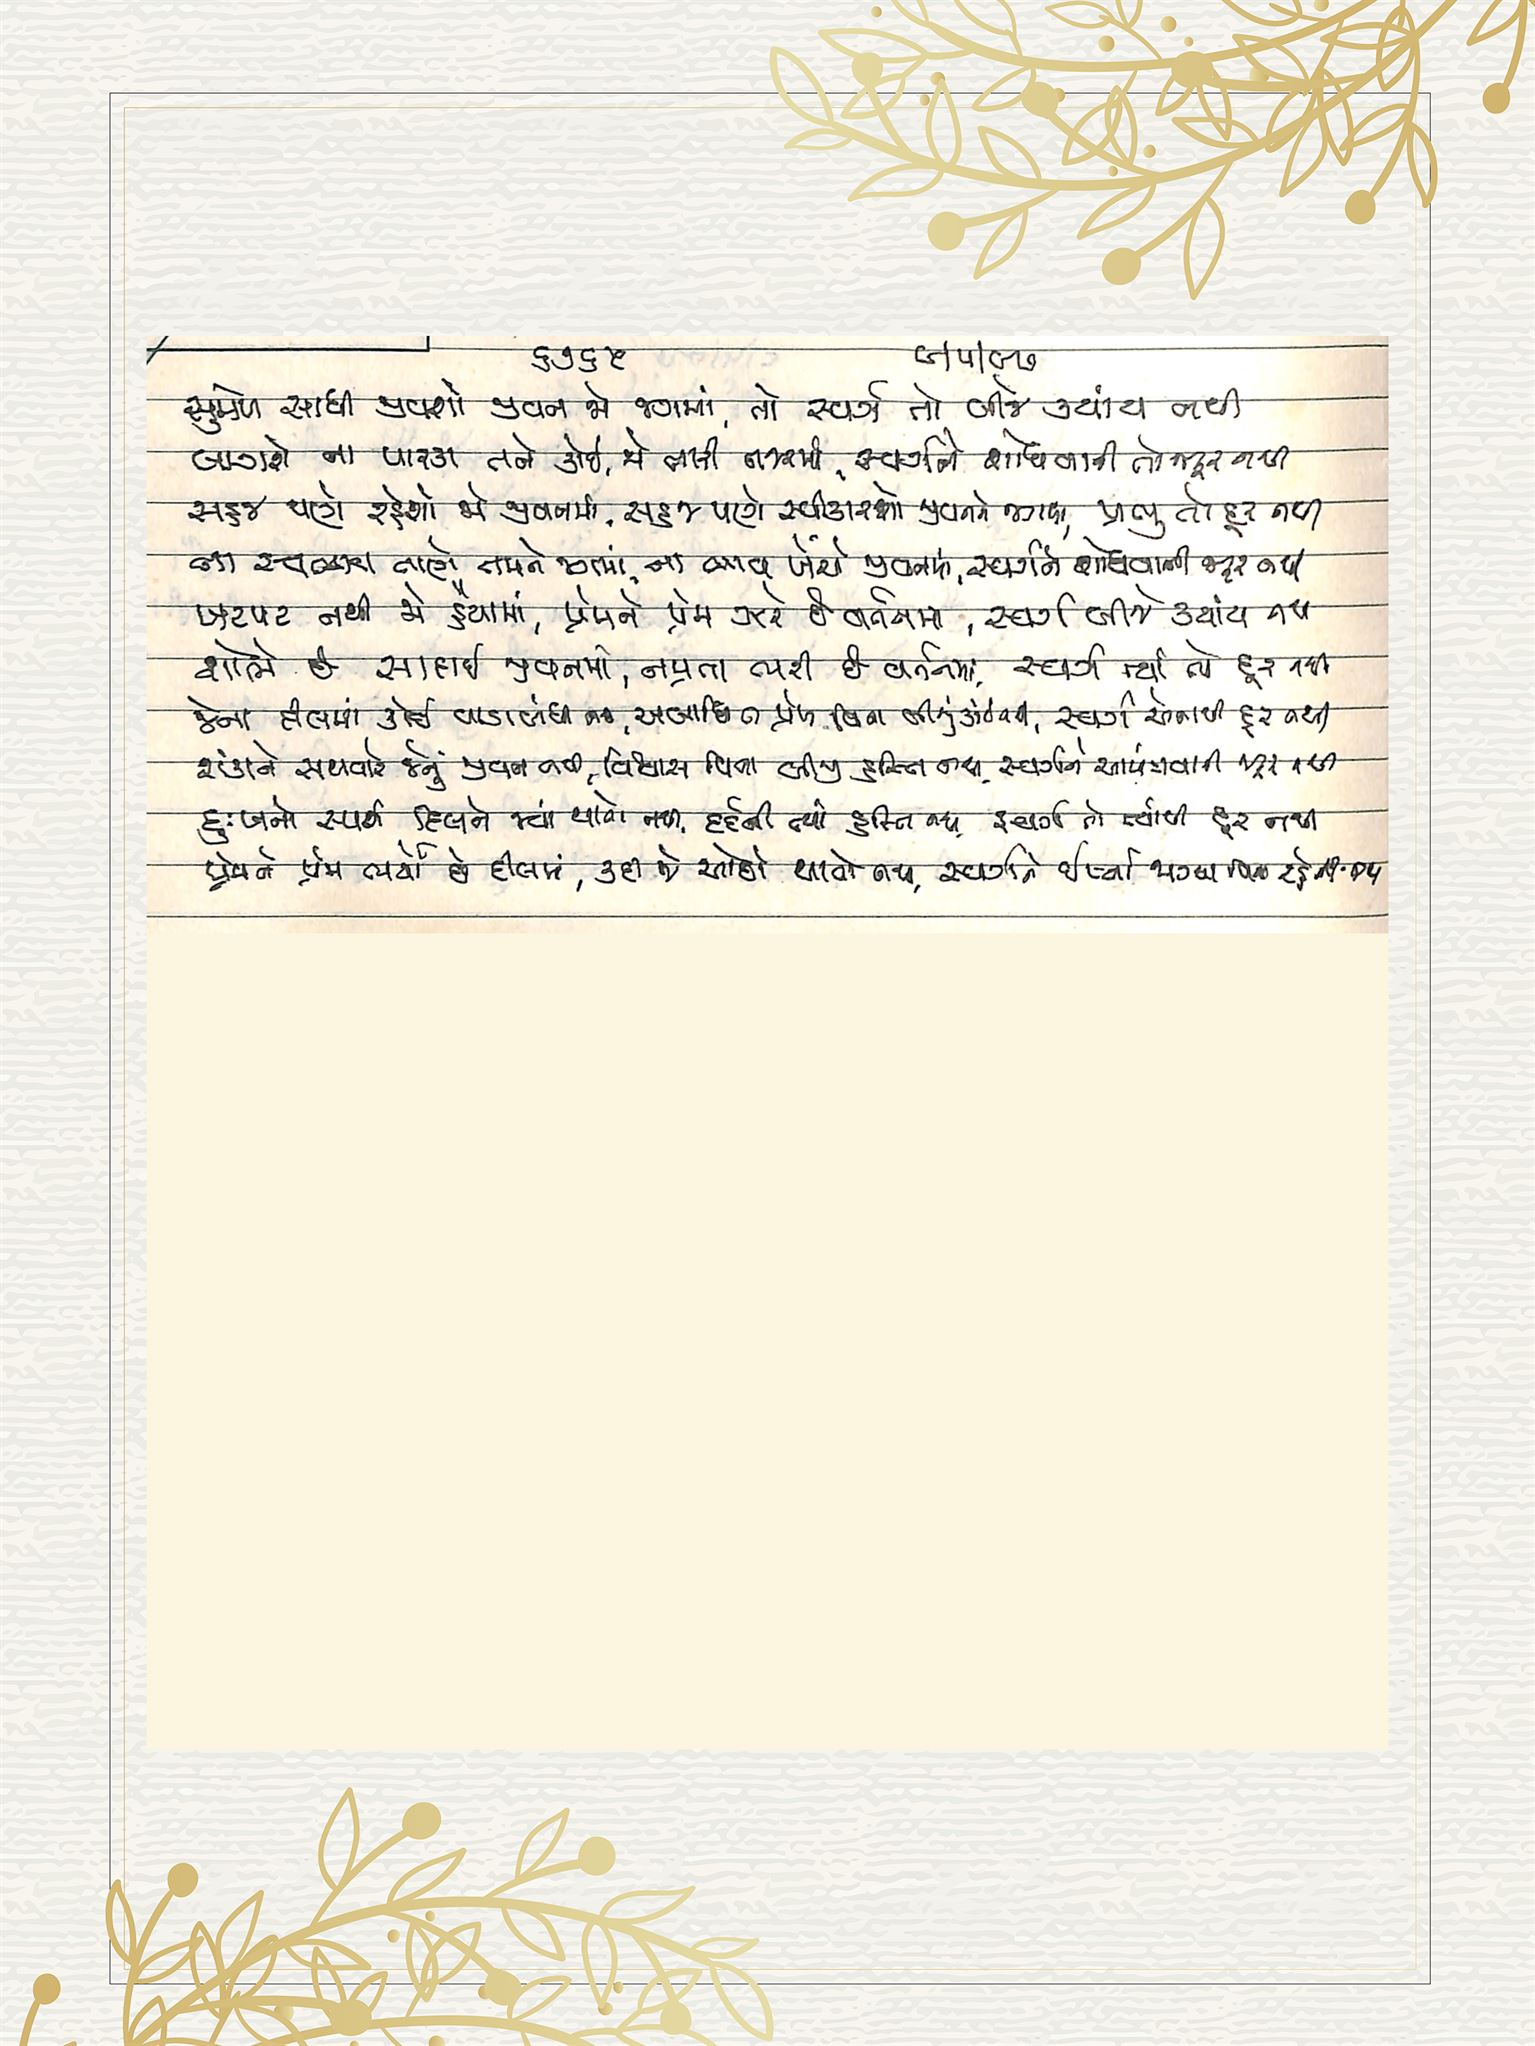 ૬૭૬૫ ૯/૫/૯૭
સુમેળ સાધી જીવશો જીવન જો જગમાં, તો સ્વર્ગ તો બીજે ક્યાંય નથી
લાગશે ના પારકા તને કોઈ, જો તારી નજરમાં, સ્વર્ગને શોધવાની તો જરૂર નથી
સહજ પણે રહેશો જો જીવનમાં, સહજ પણે સ્વીકારશો જીવનને જગમાં, પ્રભુ તો દૂર નથી
ના સ્વભાવ તાણે તમને જગમાં, ના ભાવ ખેંચે જીવનમાં, સ્વર્ગને શોધવાની જરૂર નથી
ખટપટ નથી જે હૈયામાં, પ્રેમને પ્રેમ ઝરે છે વર્તનમાં, સ્વર્ગ બીજે ક્યાંય નથી
શોભે છે સાદાઈ જીવનમાં, નમ્રતા ભરી છે વર્તનમાં, સ્વર્ગ ત્યાં તો દૂર નથી
જેના દીલમાં કોઈ વાડા બાંધી નથી, અબાધિત પ્રેમ વિના બીજું કાંઈ નથી, સ્વર્ગ એનાથી દૂર નથી
શંકાને સથવારે જેનું જીવન નથી, વિશ્વાસ વિના બીજી હસ્તિ નથી, સ્વર્ગને આમંત્રવાની જરૂર નથી
દુઃખનો સ્પર્શ દિલને જ્યાં થાતો નથી, દર્દની ત્યાં હસ્તિ નથી, સ્વર્ગ તો ત્યાંથી દૂર નથી
પ્રેમને પ્રેમ ભર્યો છે દીલમાં, કદી જે ઓછો થાતો નથી, સ્વર્ગને ઈર્ષ્યા વિના રહેતી નથી